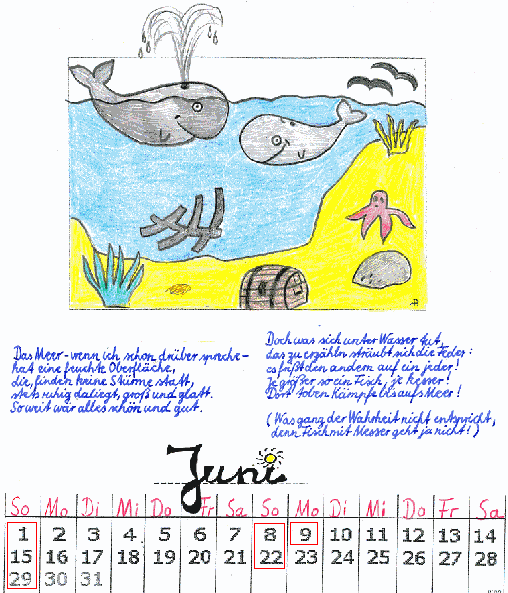 Das Meer - wenn ich schon drüber spreche -
hat eine feuchte Oberfläche,
die, finden keine Stürme statt,
stets ruhig daliegt, groß und glatt.
Soweit wär alles schön und gut.
Doch was sich unter Wasser tut,
das zu erzähln sträubt sich die Feder:
es frißt den andern auf ein jeder!
Je größer so ein Fisch, je kesser!
Dort toben Kämpfe bis aufs Meer!
(Was ganz der Wahrheit nicht entspricht,
denn Fisch mit Messer geht ja nicht!)
Juni
So Mo Di Mi Do Fr Sa So Mo Di Mi Do Fr Sa
1 2 3 4 5 6 7 8 9 10 11 12 13 14
15 16 17 18 19 20 21 22 23 24 25 26 27 28
29 30 31